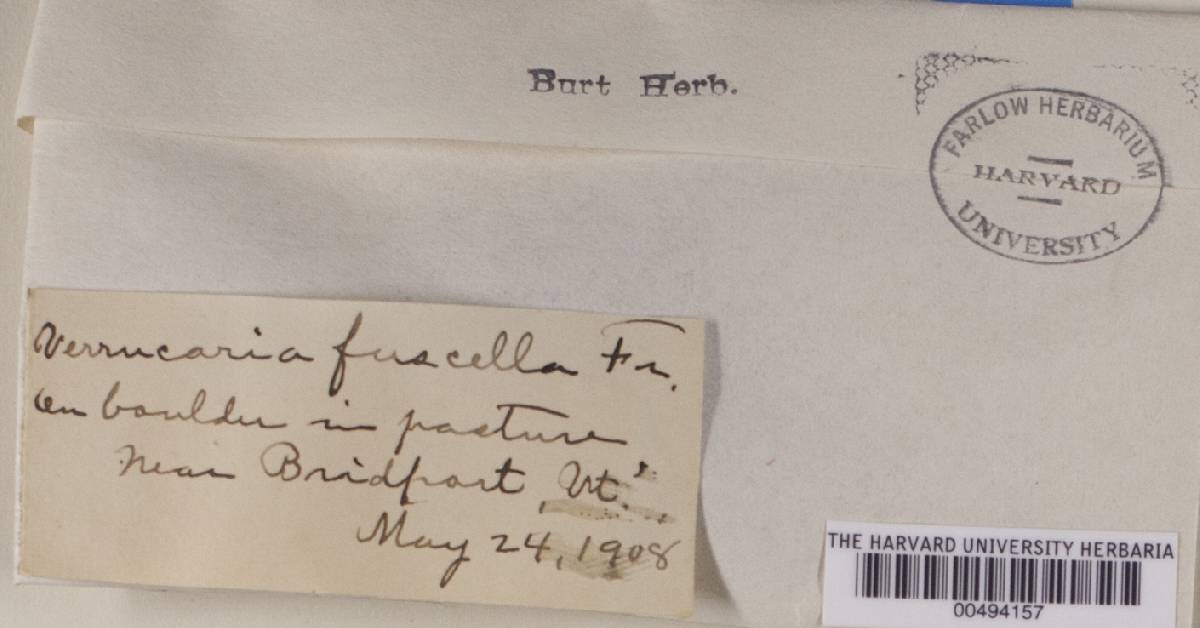 Burt Herb.
FARLOW HERBARIUM
HARVARD
UNIVERSITY
Verrucaria fuscella Fr.
on boulder in pasture
near Bridport, Vt.
May 24, 1908
THE HARVARD UNIVERSITY HERBARIA
00494157